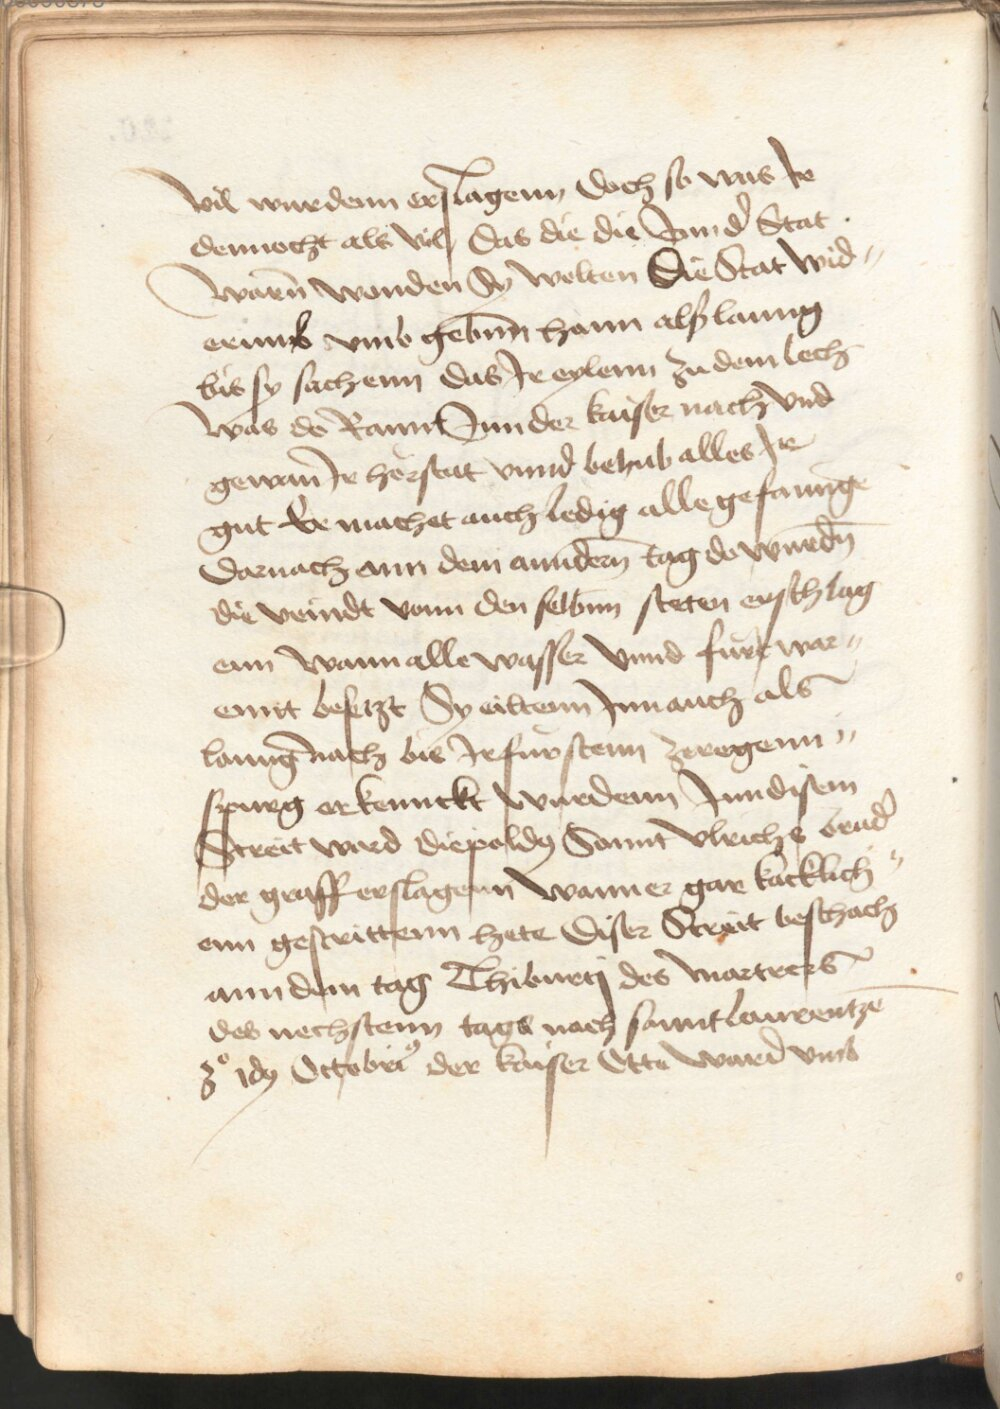 vil wurdenn erslagenn doch so was Ir
dennocht als vil Das die die Jnn d' Stat
warn wonden Sy wolten Die Stat wid-
erumb vmb gebnn hann als lanng
bis sy sachenn das Ir eylenn zu dem lech
was do Rannt Jnn der kaiser nach vnd
gewan Ir herstat vnnd behub alles Ir
gut Er machet auch ledig alle gefannge
Darnach ann dem anndern tag do wurdn
die veindt vonn den selbnn steten erschlag
enn Wann alle wasser vnnd furt war-
ennt besetzt Sy eiltenn Jnn auch als
lanng nach bis Ir furstenn ze regenn-
spurg erkennckt wurdenn Jnn disem
Streit ward diepoldg Sannt vlrichs brud'
der graff erslagenn Wann er gar käcklich-
enn gestrittenn hete Diser Streit beschach
ann dem tag Thiburtj des martrers
des nechstenn tags nach sannt laurentze
z° jdg Octobri9 der kaiser Otte ward vmb